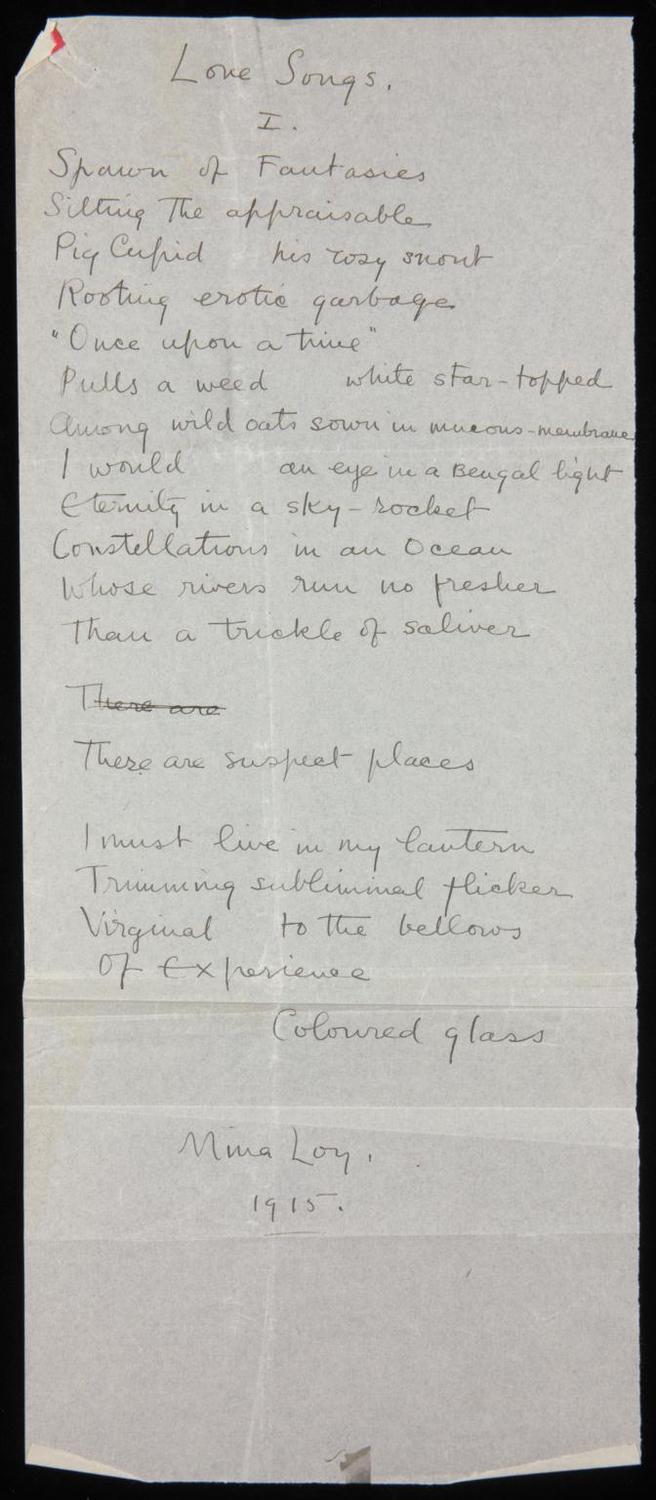 Love Songs.
I.
Spawn of Fantasies
Silting The appraisable
Pig Cupid his rosy snout
Rooting erotic garbage
"Once upon a time"
Pulls a weed white star-topped
Among wild oats sown in mucous-membrane
I would an eye in a Bengal light
Eternity in a sky-rocket
Constellations in an Ocean
Whose rivers run no fresher
Than a trickle of saliver
There are
There are suspect places
I must live in my lantern
Trimming subliminal flicker
Virginal to the bellows
Of Experience
Coloured glass
Mina Loy.
1915.